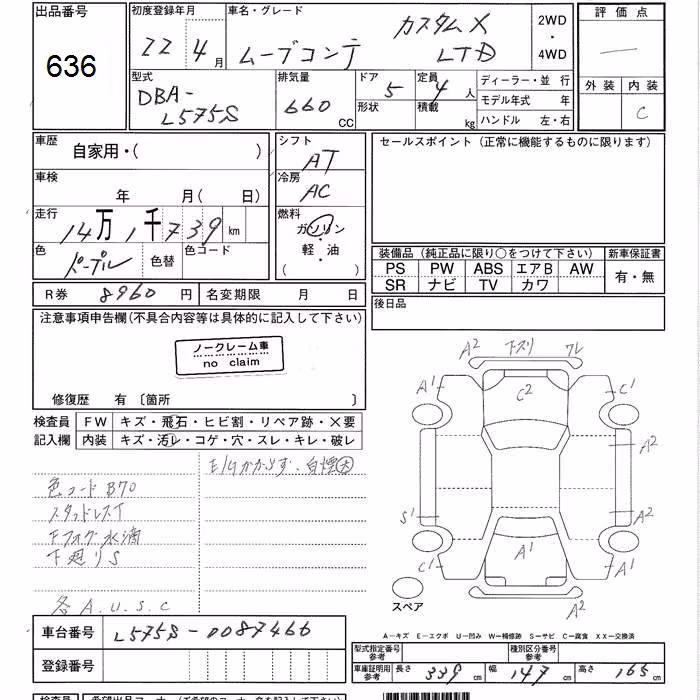 出品番号
636
初度登録年月
22年 4月
車名・グレード
ムーブコンテ カスタムX LTD
2WD
・
4WD
評価点
—
外装 内装
C
型式
DBA-
L575S
排気量
660 CC
ドア 5
形状
定員 4 人
積載 kg
ディーラー・並行
モデル年式 年
ハンドル 左・右
車歴
自家用・( )
シフト
AT
セールスポイント (正常に機能するものに限ります)
車検
年 月(日)
冷房
AC
走行
14万1千739km
燃料
ガソリン
・
軽・油
( )
色
パープル
色替
色コード
装備品 (純正品に限り○をつけて下さい)
新車保証書
PS PW ABS エアB AW
SR ナビ TV カワ
有・無
R券 8960円
名変期限 月 日
後日品
注意事項申告欄(不具合内容等は具体的に記入して下さい)
ノークレーム車
no claim
修復歴 有 〔箇所 〕
検査員
記入欄
FW キズ・飛石・ヒビ割・リペア跡・×要
内装 キズ・汚レ・コゲ・穴・スレ・キレ・破レ
E/Gかかよす・白煙大
色コードB70
スタッドレスT
Fフォグ水滴
下廻りS
各A.U.S.C
A2 下スリ ワレ
A1 C2 C1
A2
S1 A2
C1 A1 A1
A2
スペア
A—キズ E—エクボ U—凹み W—補修跡 S—サビ C—腐食 XX—交換済
車台番号 L575S-0087466
登録番号
型式指定番号
参考
種別区分番号
参考
車庫証明用
参考
長さ 339cm 幅 147cm 高さ 165cm